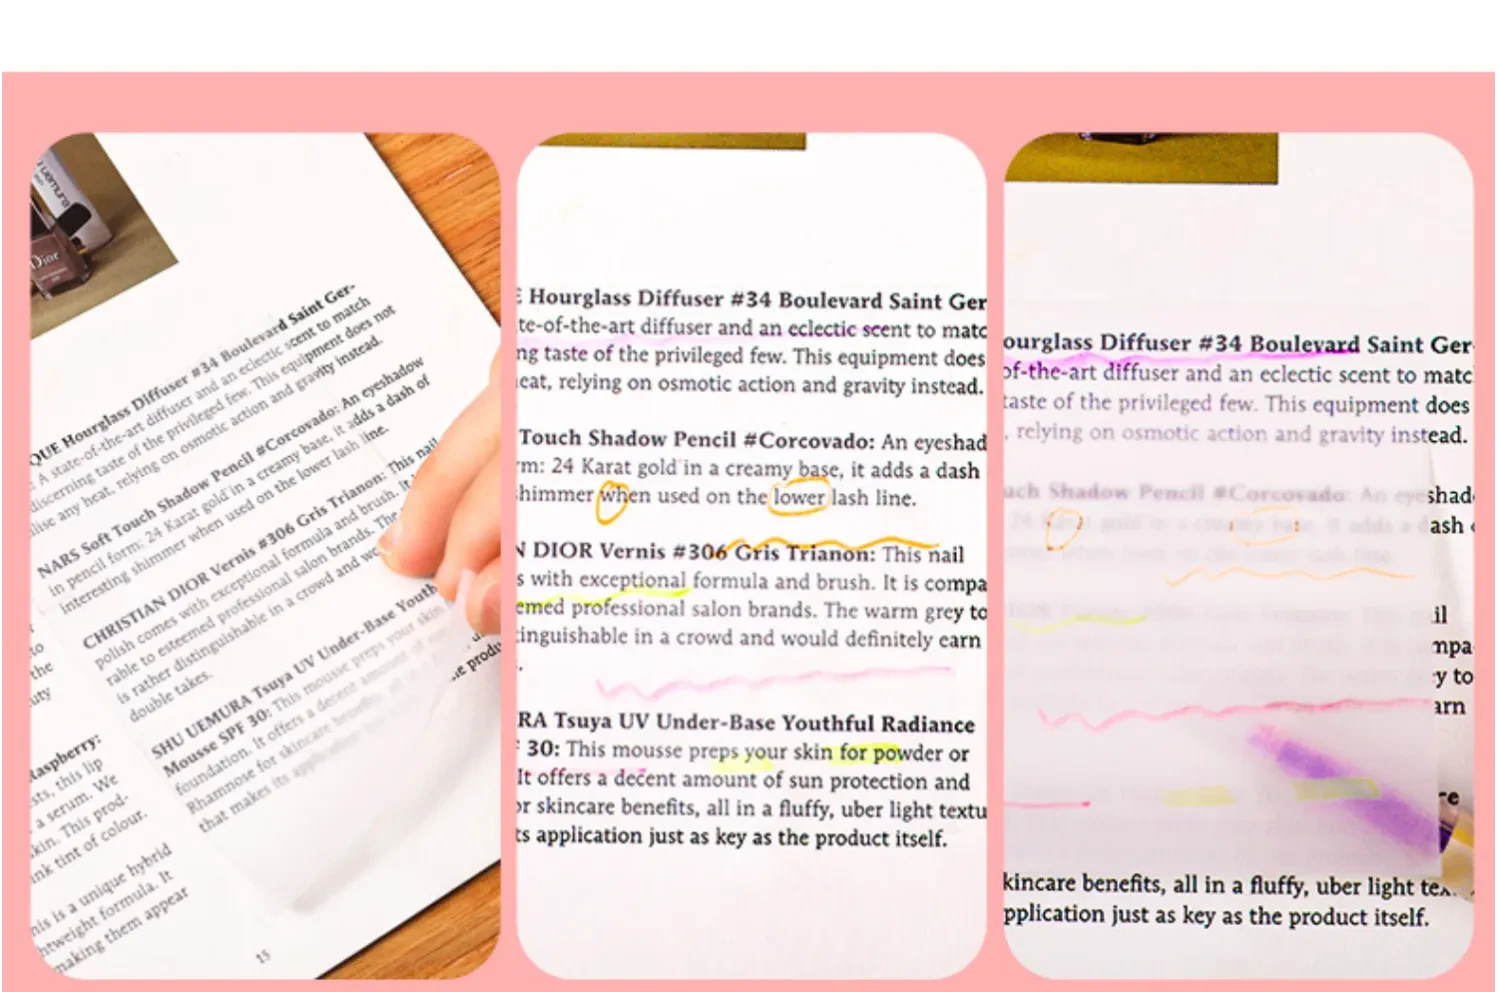 uemura
Dior
QUE Hourglass Diffuser #34 Boulevard Saint Ger-
: A state-of-the-art diffuser and an eclectic scent to match
discerning taste of the privileged few. This equipment does not
ilise any heat, relying on osmotic action and gravity instead.
NARS Soft Touch Shadow Pencil #Corcovado: An eyeshadow
in pencil form: 24 Karat gold in a creamy base, it adds a dash of
interesting shimmer when used on the lower lash line.
CHRISTIAN DIOR Vernis #306 Gris Trianon: This nail
polish comes with exceptional formula and brush. It
rable to esteemed professional salon brands. The
is rather distinguishable in a crowd and wo
double takes.
SHU UEMURA Tsuya UV Under-Base Youth
Mousse SPF 30: This mousse preps your skin
foundation. It offers a decent amount of
Rhamnose for skincare benefits, all in
that makes its application
e produ
to
the
uty
Raspberry:
sts, this lip
a serum. We
kin. This prod-
ink tint of colour.
his is a unique hybrid
htweight formula. It
making them appear
15
E Hourglass Diffuser #34 Boulevard Saint Ger
te-of-the-art diffuser and an eclectic scent to matc
ng taste of the privileged few. This equipment does
eat, relying on osmotic action and gravity instead.
Touch Shadow Pencil #Corcovado: An eyeshad
rm: 24 Karat gold in a creamy base, it adds a dash
himmer when used on the lower lash line.
N DIOR Vernis #306 Gris Trianon: This nail
s with exceptional formula and brush. It is compa
emed professional salon brands. The warm grey to
tinguishable in a crowd and would definitely earn
.
RA Tsuya UV Under-Base Youthful Radiance
F 30: This mousse preps your skin for powder or
It offers a decent amount of sun protection and
or skincare benefits, all in a fluffy, uber light textu
ts application just as key as the product itself.
ourglass Diffuser #34 Boulevard Saint Ger-
of-the-art diffuser and an eclectic scent to matc
taste of the privileged few. This equipment does
, relying on osmotic action and gravity instead.
uch Shadow Pencil #Corcovado: An eyeshad
24 Karat gold in a creamy base, it adds a dash
il
mpa
y to
arn
re
kincare benefits, all in a fluffy, uber light tex
pplication just as key as the product itself.